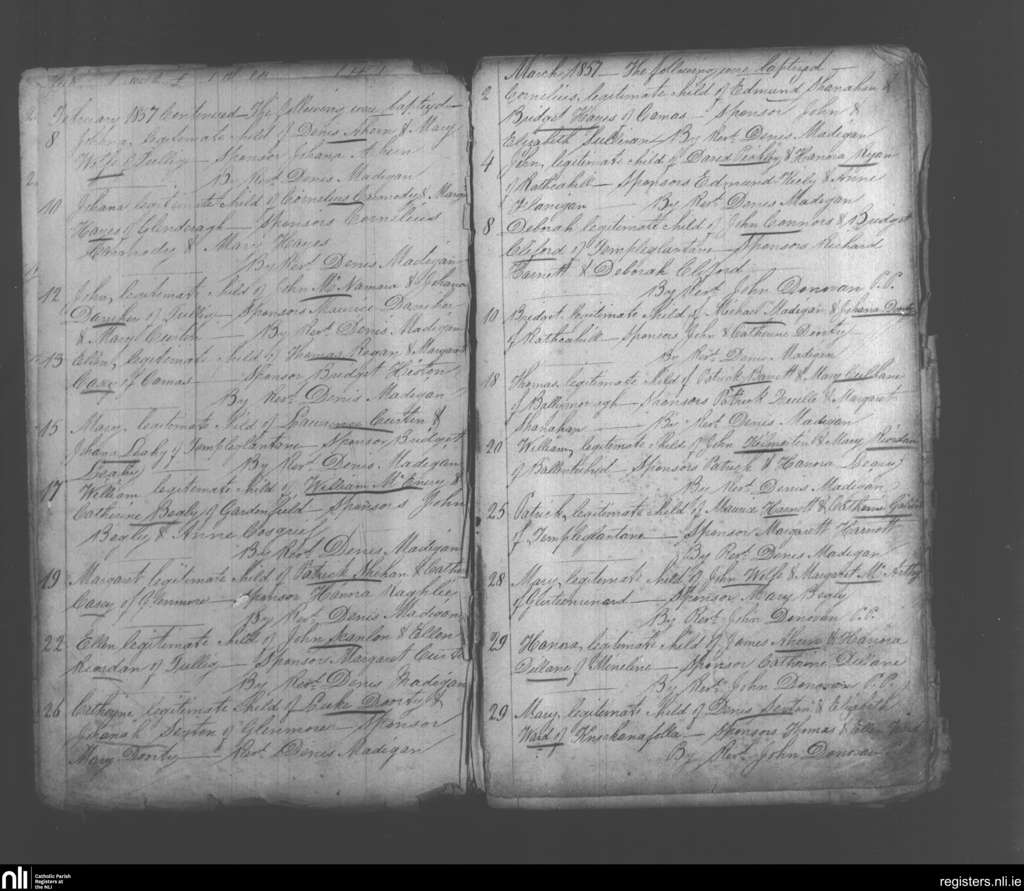 February 1857 Continued — The following were baptized —
8 Johana, legitimate child of Denis Ahern & Mary
Wolfe of Tullig — Sponsor Johana Ahern
By Revt. Denis Madigan
10 Johana legitimate child of Cornelius & Margt
Hayes of Glendragh — Sponsors Cornelius
& Mary Hayes
By Revt. Denis Madigan
12 John, legitimate child of John McNamara & Johana
Danaher of Tullig — Sponsors Maurice Danaher
& Mary Curtin — By Revt. Denis Madigan
13 Ellen, legitimate child of Thomas Regan & Margaret
Casey of Camas — Sponsor Bridget
By Revt. Denis Madigan
15 Mary, legitimate child of Laurence Curtin &
Johana Leahy of Templeglantane — Sponsor Bridget
Leahy — By Revt. Denis Madigan
17 William legitimate child of William McEnery &
Catherine Begly of Gardenfield — Sponsors John
Begly & Anne Cosgrief
By Revt. Denis Madigan
19 Margaret legitimate child of Patrick Meehan & Cathe
Casey of Glenmore — Sponsor Hanora
By Revt. Denis Madigan
22 Ellen legitimate child of John Scanlon & Ellen
Reardan of Tullig — Sponsors Margaret Curtin
By Revt. Denis Madigan
26 Catherine, legitimate child of Luke Dority &
Johanah Sexton of Glenmore — Sponsor
Mary Dority — Revt. Denis Madigan
March, 1857 — The following were baptized —
2 Cornelius, legitimate child of Edmund Shanahan &
Bridget Hayes of Camas — Sponsors John &
Elizabeth Sullivan By Revt. Denis Madigan
4 John, legitimate child of David & Hanora Ryan
of Rathcahill — Sponsors Edmund & Anne
Flanigan — By Revt. Denis Madigan
8 Deborah legitimate child of John Connors & Bridget
Cliford of Templeglantine — Sponsors Richard
Barrett & Deborah Cliford
By Revt. John Donovan C.C.
10 Bridget legitimate child of Michael Madigan & Johana Dority
of Rathcahill — Sponsors John & Catherine Dority
By Revt. Denis Madigan
18 Thomas, legitimate child of Patrick Barrett & Mary Cullane
of — Sponsors Patrick & Margaret
Shanahan — By Revt. Denis Madigan
20 William, legitimate child of John & Mary Riordan
of — Sponsors Patrick & Hanora Leary
By Revt. Denis Madigan
25 Patrick, legitimate child of Maurice Harnott & Catherine
of Templeglantane — Sponsor Margarett Harnott
By Revt. Denis Madigan
28 Mary, legitimate child of John Wolfe & Margaret Mc
of — Sponsor Mary Begly
By Revt. John Donovan C.C.
29 Hanora, legitimate child of James Ahern & Hanora
Dillane of Meneline — Sponsor Catherine Dillane
By Revt. John Donovan C.C.
29 Mary, legitimate child of Denis Sexton & Elizabeth
Ward of Knockanafolla — Sponsors Thomas & Ellen Ward
By Revt. John Donovan
nli
Catholic Parish
Registers at
the NLI
registers.nli.ie